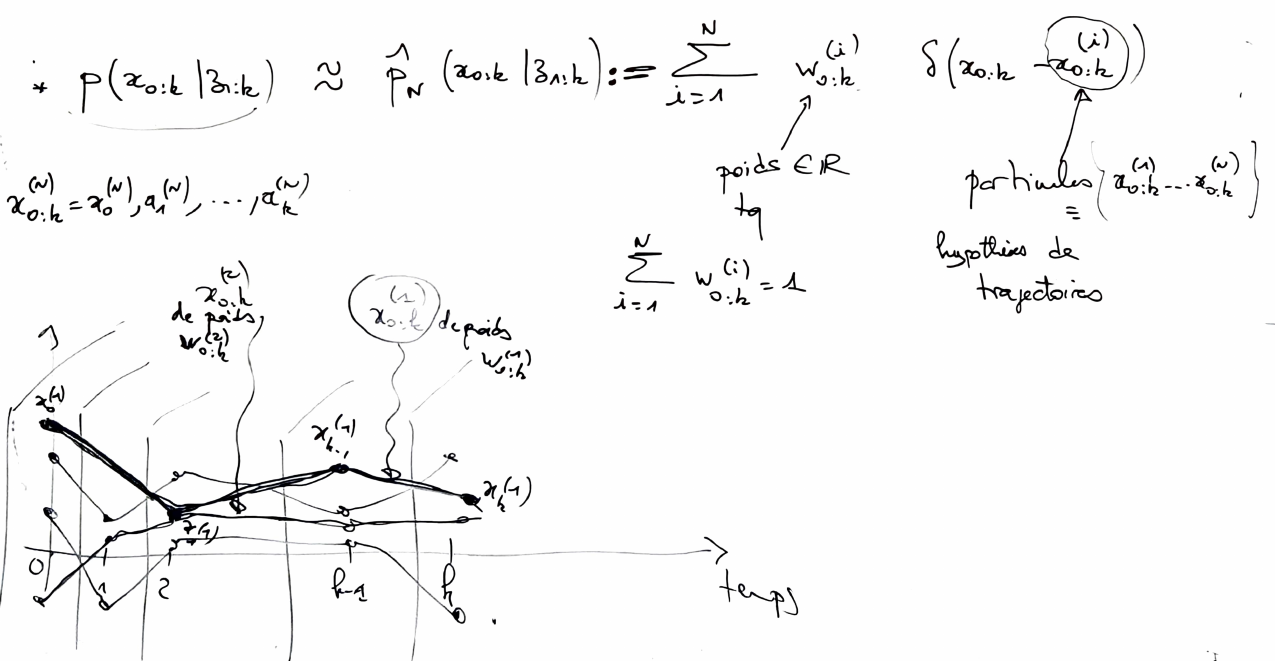 * p(x_{0:k} | z_{1:k}) ≈ p̂_N (x_{0:k} | z_{1:k}) := \sum_{i=1}^{N} w_{0:k}^{(i)} δ(x_{0:k} - x_{0:k}^{(i)})
poids ∈ ℝ
tq
\sum_{i=1}^{N} w_{0:k}^{(i)} = 1
particules { x_{0:k}^{(1)} ... x_{0:k}^{(N)} }
≡
hypothèses de
trajectoires
x_{0:k}^{(N)} = x_0^{(N)}, x_1^{(N)}, ..., x_k^{(N)}
x_{0:k}^{(2)}
de poids
w_{0:k}^{(2)}
x_{0:k}^{(1)} de poids
w_{0:k}^{(1)}
x_0^{(1)}
x_{k-1}^{(1)}
x_k^{(1)}
0 1 2 k-1 k
temps